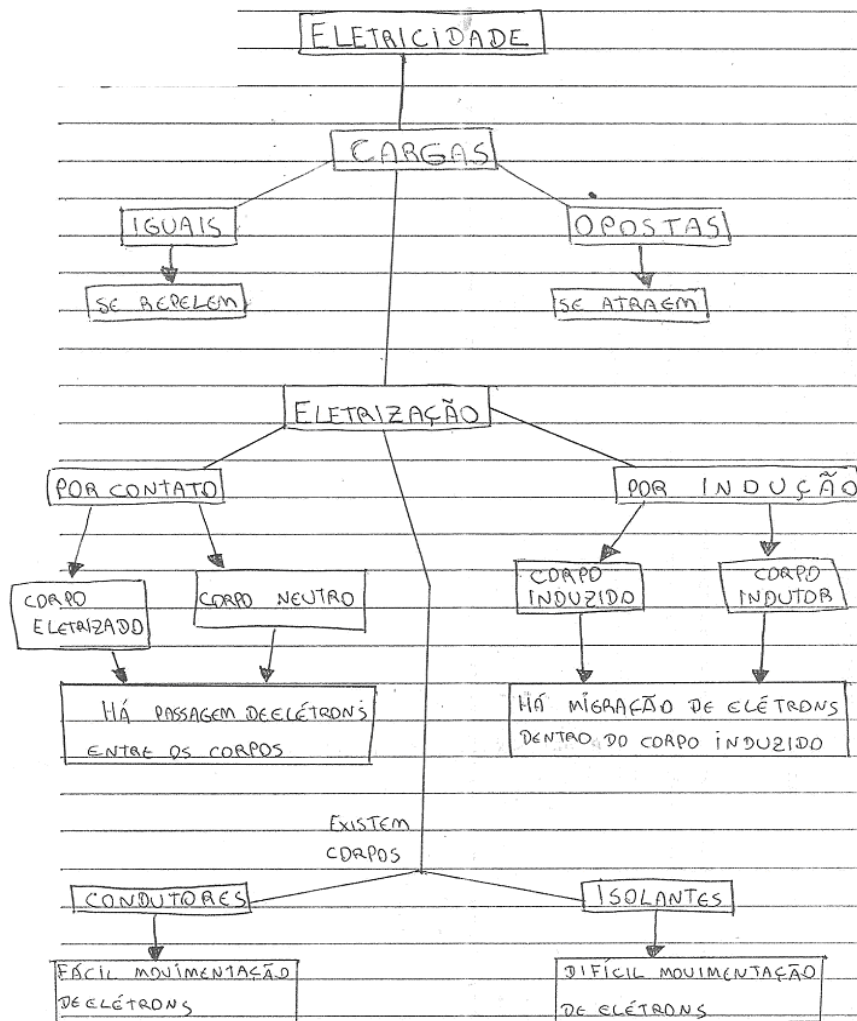 ELETRICIDADE
CARGAS
IGUAIS
OPOSTAS
SE REPELEM
SE ATRAEM
ELETRIZAÇÃO
POR CONTATO
POR INDUÇÃO
CORPO
ELETRIZADO
CORPO NEUTRO
CORPO
INDUZIDO
CORPO
INDUTOR
HÁ PASSAGEM DE ELÉTRONS
ENTRE OS CORPOS
HÁ MIGRAÇÃO DE ELÉTRONS
DENTRO DO CORPO INDUZIDO
EXISTEM
CORPOS
CONDUTORES
ISOLANTES
FÁCIL MOVIMENTAÇÃO
DE ELÉTRONS
DIFÍCIL MOVIMENTAÇÃO
DE ELÉTRONS